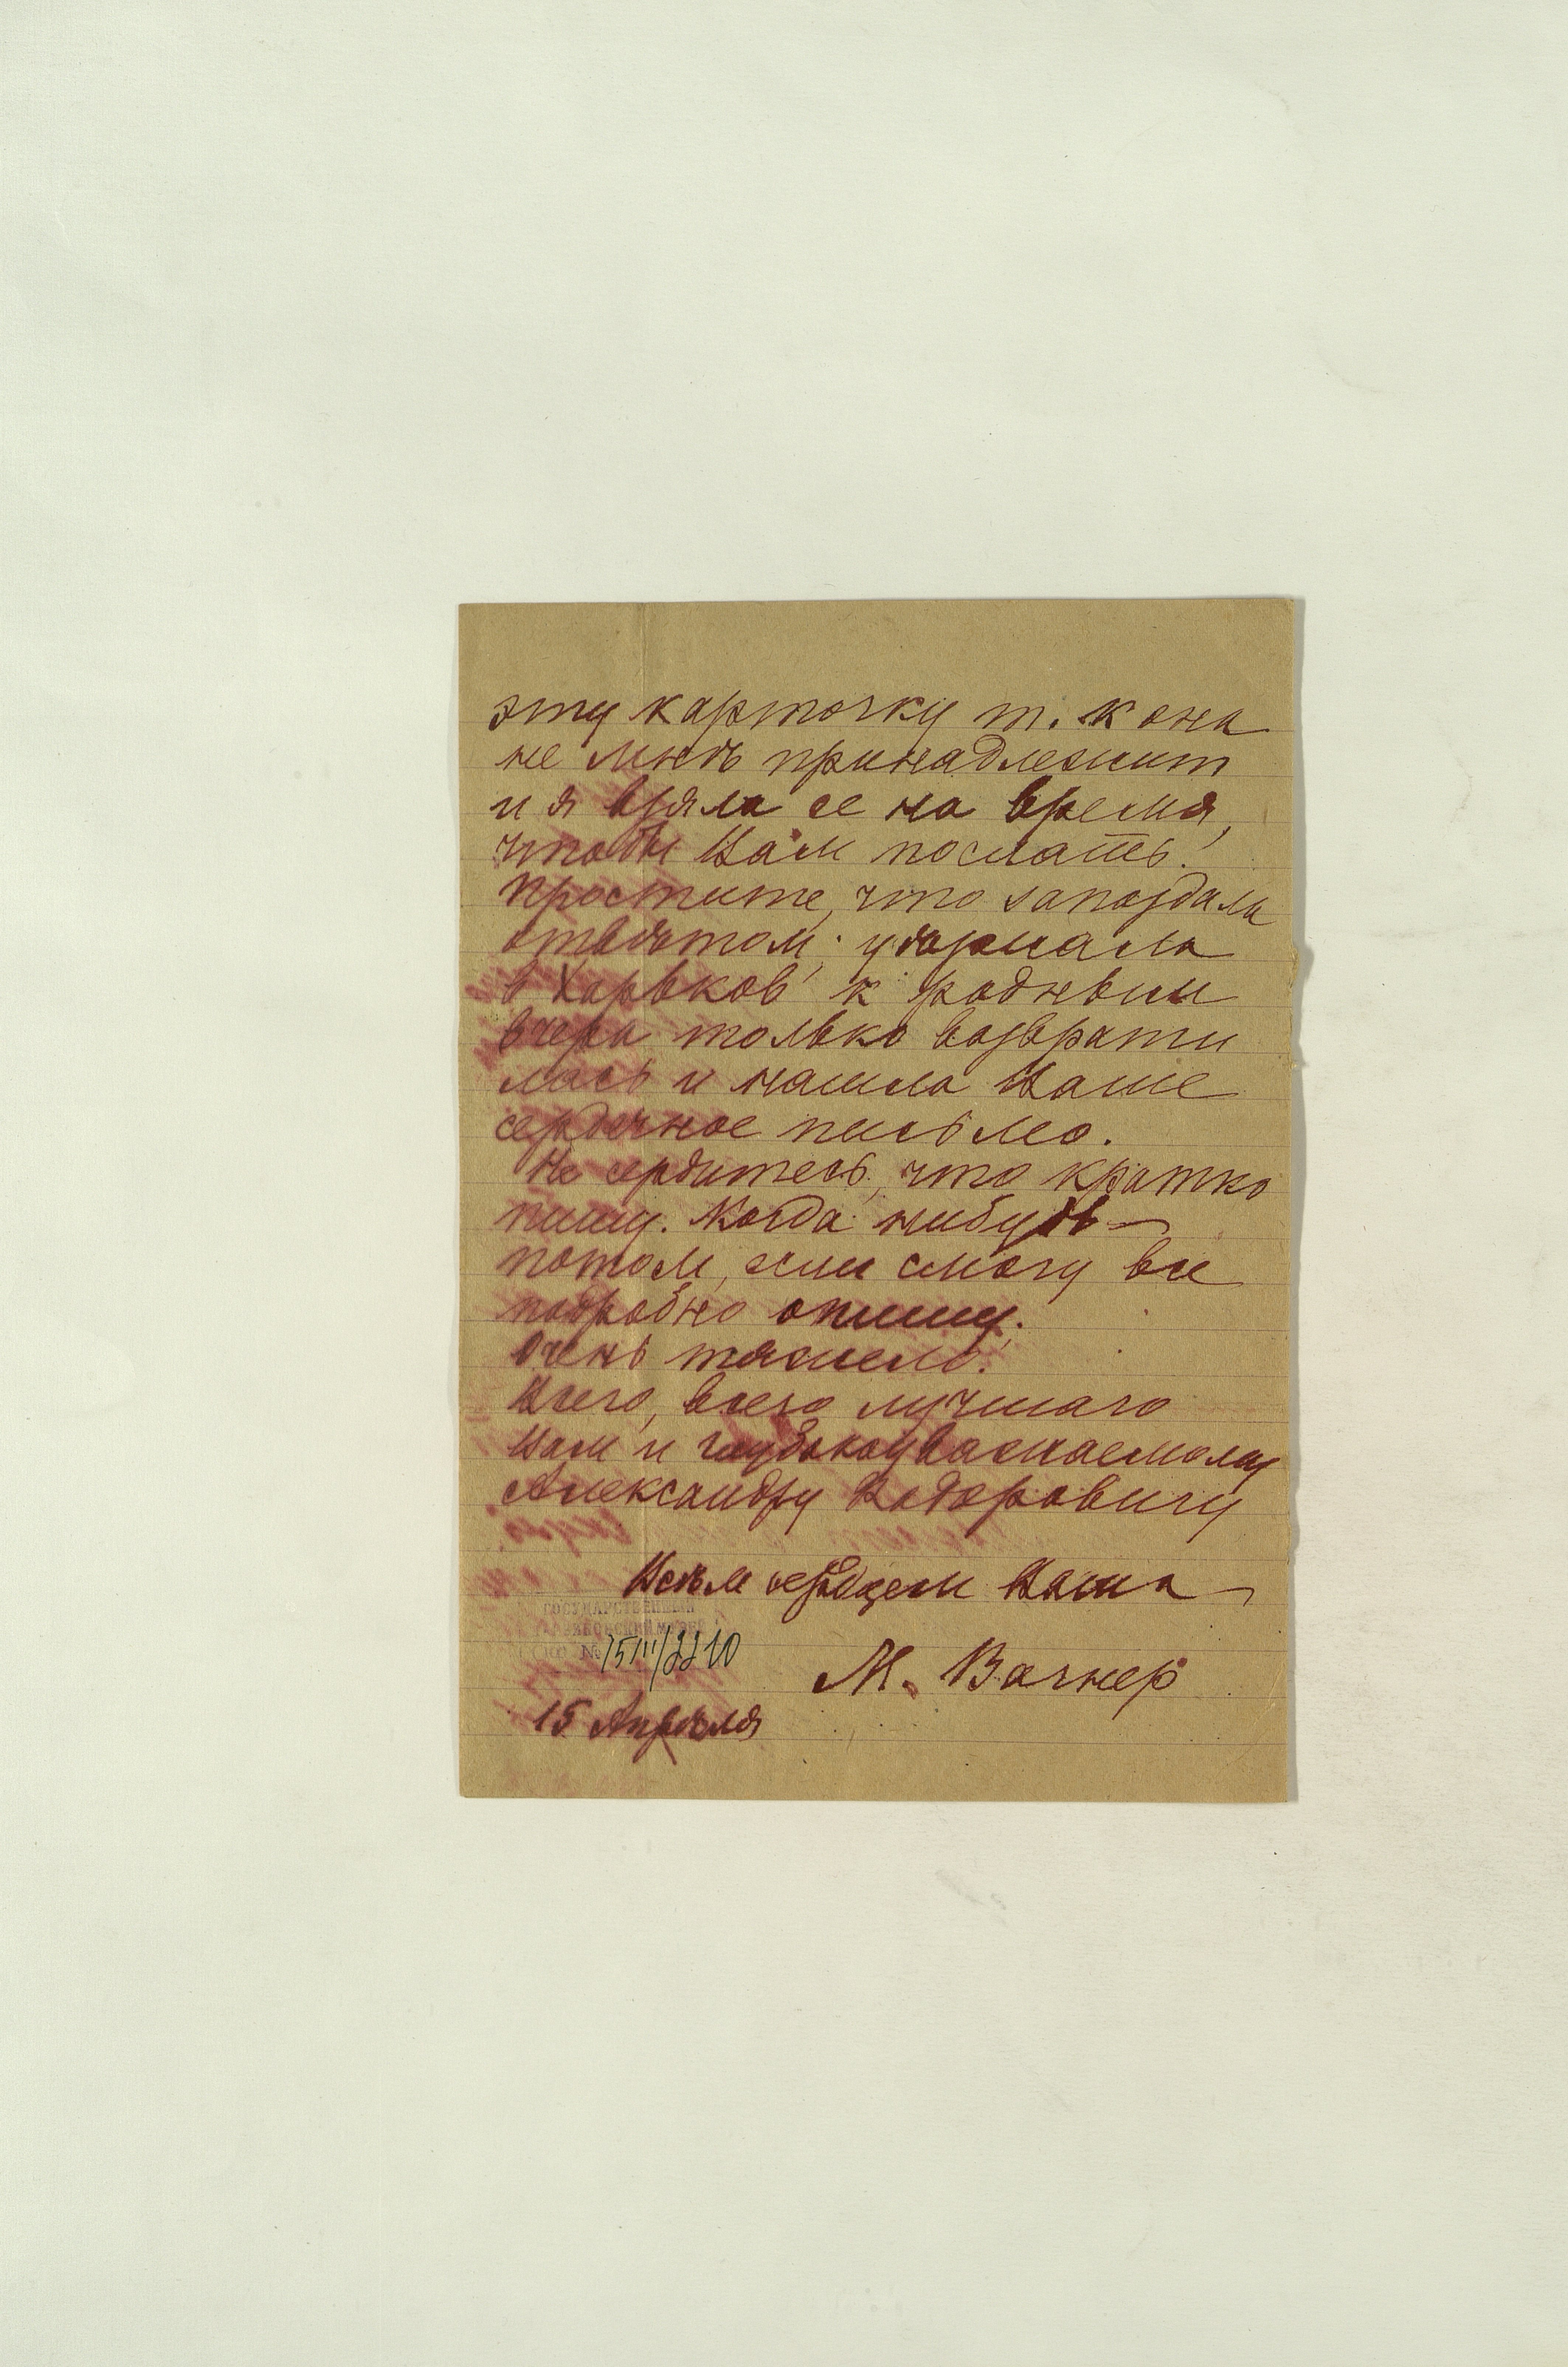 эту карточку т. к она
не мнѣ принадлежит
и я взяла ее на время,
чтобы Вам послать!
Простите, что запоздала
отвѣтом;
в Харьков к родневши
вчера только возврати
лась и нашла Ваше
сердечное письмо.
Не сердитесь, что кратко
пишу. Когда нибудь —
потом, если смогу все
подробно опишу.
Очень тяжело.
Всего, всего лучшаго
Вам и глубокоуважаемому
Александру Федоровичу
Всѣм сердцем Ваша
М. Вагнер
ГОСУДАРСТВЕННЫЙ
№ 75III/2210
15 Апрѣля